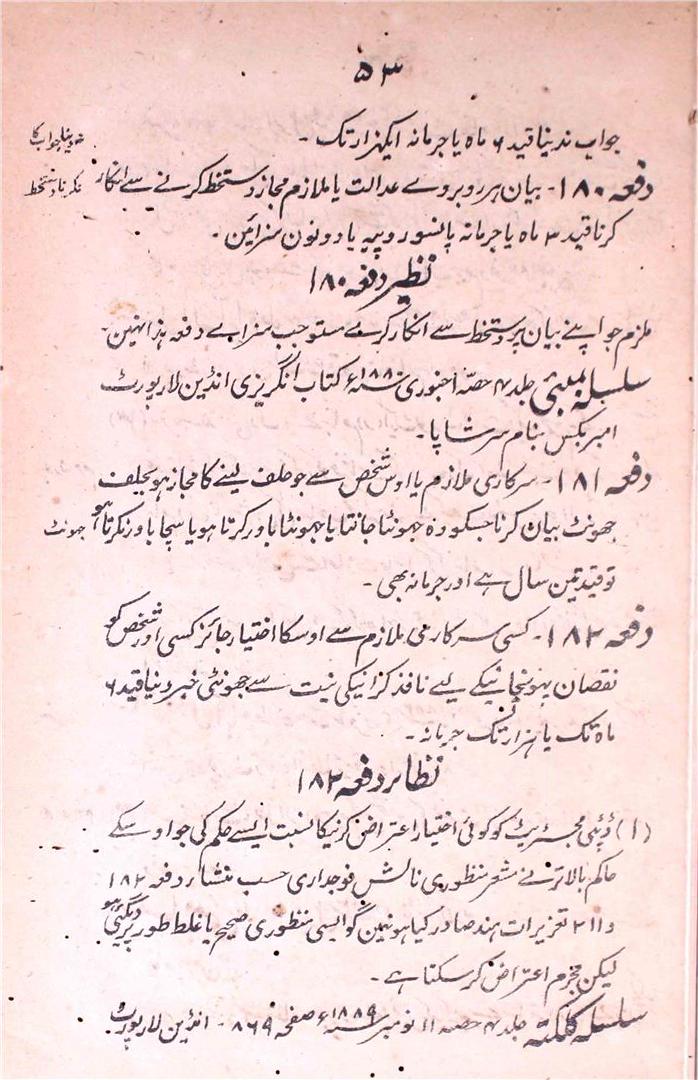 ۵۳
جواب ندینا قید ۶ ماہ یا جرمانہ ایکہزار تک۔
ندینا جواب کا
دفعہ ۱۸۰۔ بیان ہر روبروے عدالت یا ملازم مجاز دستخط کرنے سے انکار
نکرنا دستخط
کرنا قید ۳ ماہ یا جرمانہ پانسو روپیہ یا دونون سزائین۔
نظیر دفعہ ۱۸۰
ملزم جو اپنے بیان پر دستخط سے انکار کرے مستوجب سزاے دفعہ ہذا نہین۔
سلسلہ بمبئی جلد ۴ حصّہ ۱ جنوری سنہ ۱۸۸۰ء کتاب انگریزی انڈین لا رپورٹ
امبر بکس بنام سرشاپا۔
دفعہ ۱۸۱۔ سرکاری ملازم یا اوس شخص سے جو حلف لینے کا مجاز ہو بحلف
جھونٹ بیان کرنا جسکو وہ جہونٹا جانتا یا جہونٹا باور کرتا ہو یا سچا باور نکرتا ہو
جہونٹ
تو قید تین سال ہے اور جرمانہ بھی۔
دفعہ ۱۸۲۔ کسی سرکارمی ملازم سے اوسکا اختیار جائز کسی اور شخص کو
نقصان پہونچانیکے لیے نافذ کرانیکی نیت سے جھونٹی خبر دینا قید ۶
ماہ تک یا ہزار تک جرمانہ۔
نظائر دفعہ ۱۸۲
(۱) ڈپٹی مجسٹریٹ کو کوئی اختیار اعتراض کرنیکا بنسبت ایسے حکم کی جو اوسکے
حاکم بالاتر نے مشعر منظوری نالش فوجداری حسب منشاء دفعہ ۱۸۲
و ۲۱۱ تعزیرات ہند صادر کیا ہو نہین گو ایسی منظوری صحیح یا غلط طور پر دیگئی ہو
لیکن مجرم اعتراض کر سکتا ہے۔
سلسلہ کلکتہ جلد ۴ حصہ ۱۱ نومبر سنہ ۱۸۸۹ء صفحہ ۸۶۹۔ انڈین لا رپورٹ